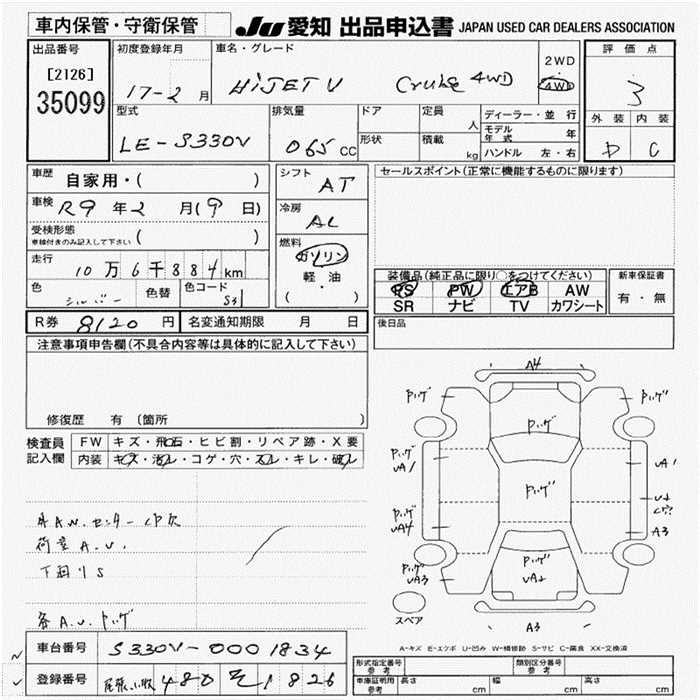 車内保管・守衛保管
JU 愛知 出品申込書 JAPAN USED CAR DEALERS ASSOCIATION
出品番号
[2126]
35099
初度登録年月
17-2 月
車名・グレード
HIJET V Cruise 4WD
2WD
4WD
評価点
3
外装 内装
D C
型式
LE-S330V
排気量
065 CC
ドア
形状
定員
人
積載
kg
ディーラー・並行
モデル年式 年
ハンドル 左・右
車歴
自家用・( )
車検
R9 年 2 月 (9 日)
受検形態
車検付きのみ記入して下さい ( )
走行
10 万 6 千 884 km
色
シルバー
色替
色コード
S3
シフト
AT
冷房
AC
燃料
ガソリン
軽・油
( )
セールスポイント(正常に機能するものに限ります)
装備品(純正品に限り○をつけてください)
PS PW エアB AW
SR ナビ TV カワシート
新車保証書
有・無
後日品
R券 8120 円
名変通知期限 月 日
注意事項申告欄(不具合内容等は具体的に記入して下さい)
修復歴 有 (箇所 )
検査員
記入欄
FW キズ・飛石・ヒビ割・リペア跡・X要
内装 キズ・汚レ・コゲ・穴・スレ・キレ・破レ
荷室A.U.
下廻りS
各A.U.アゲ
A4
アゲ
アゲ
アゲ
アゲ
UA1
アゲ
UA4
アゲ
UA3
アゲ
アゲ
UA2
UA1
A3
A3
スペア
A-キズ E-エクボ U-凹み W-補修跡 S-サビ C-腐食 XX-交換済
車台番号
S330V-0001834
登録番号
480 826
形式指定番号
参考
類別区分番号
参考
車庫証明用
参考
長さ cm
幅 cm
高さ cm